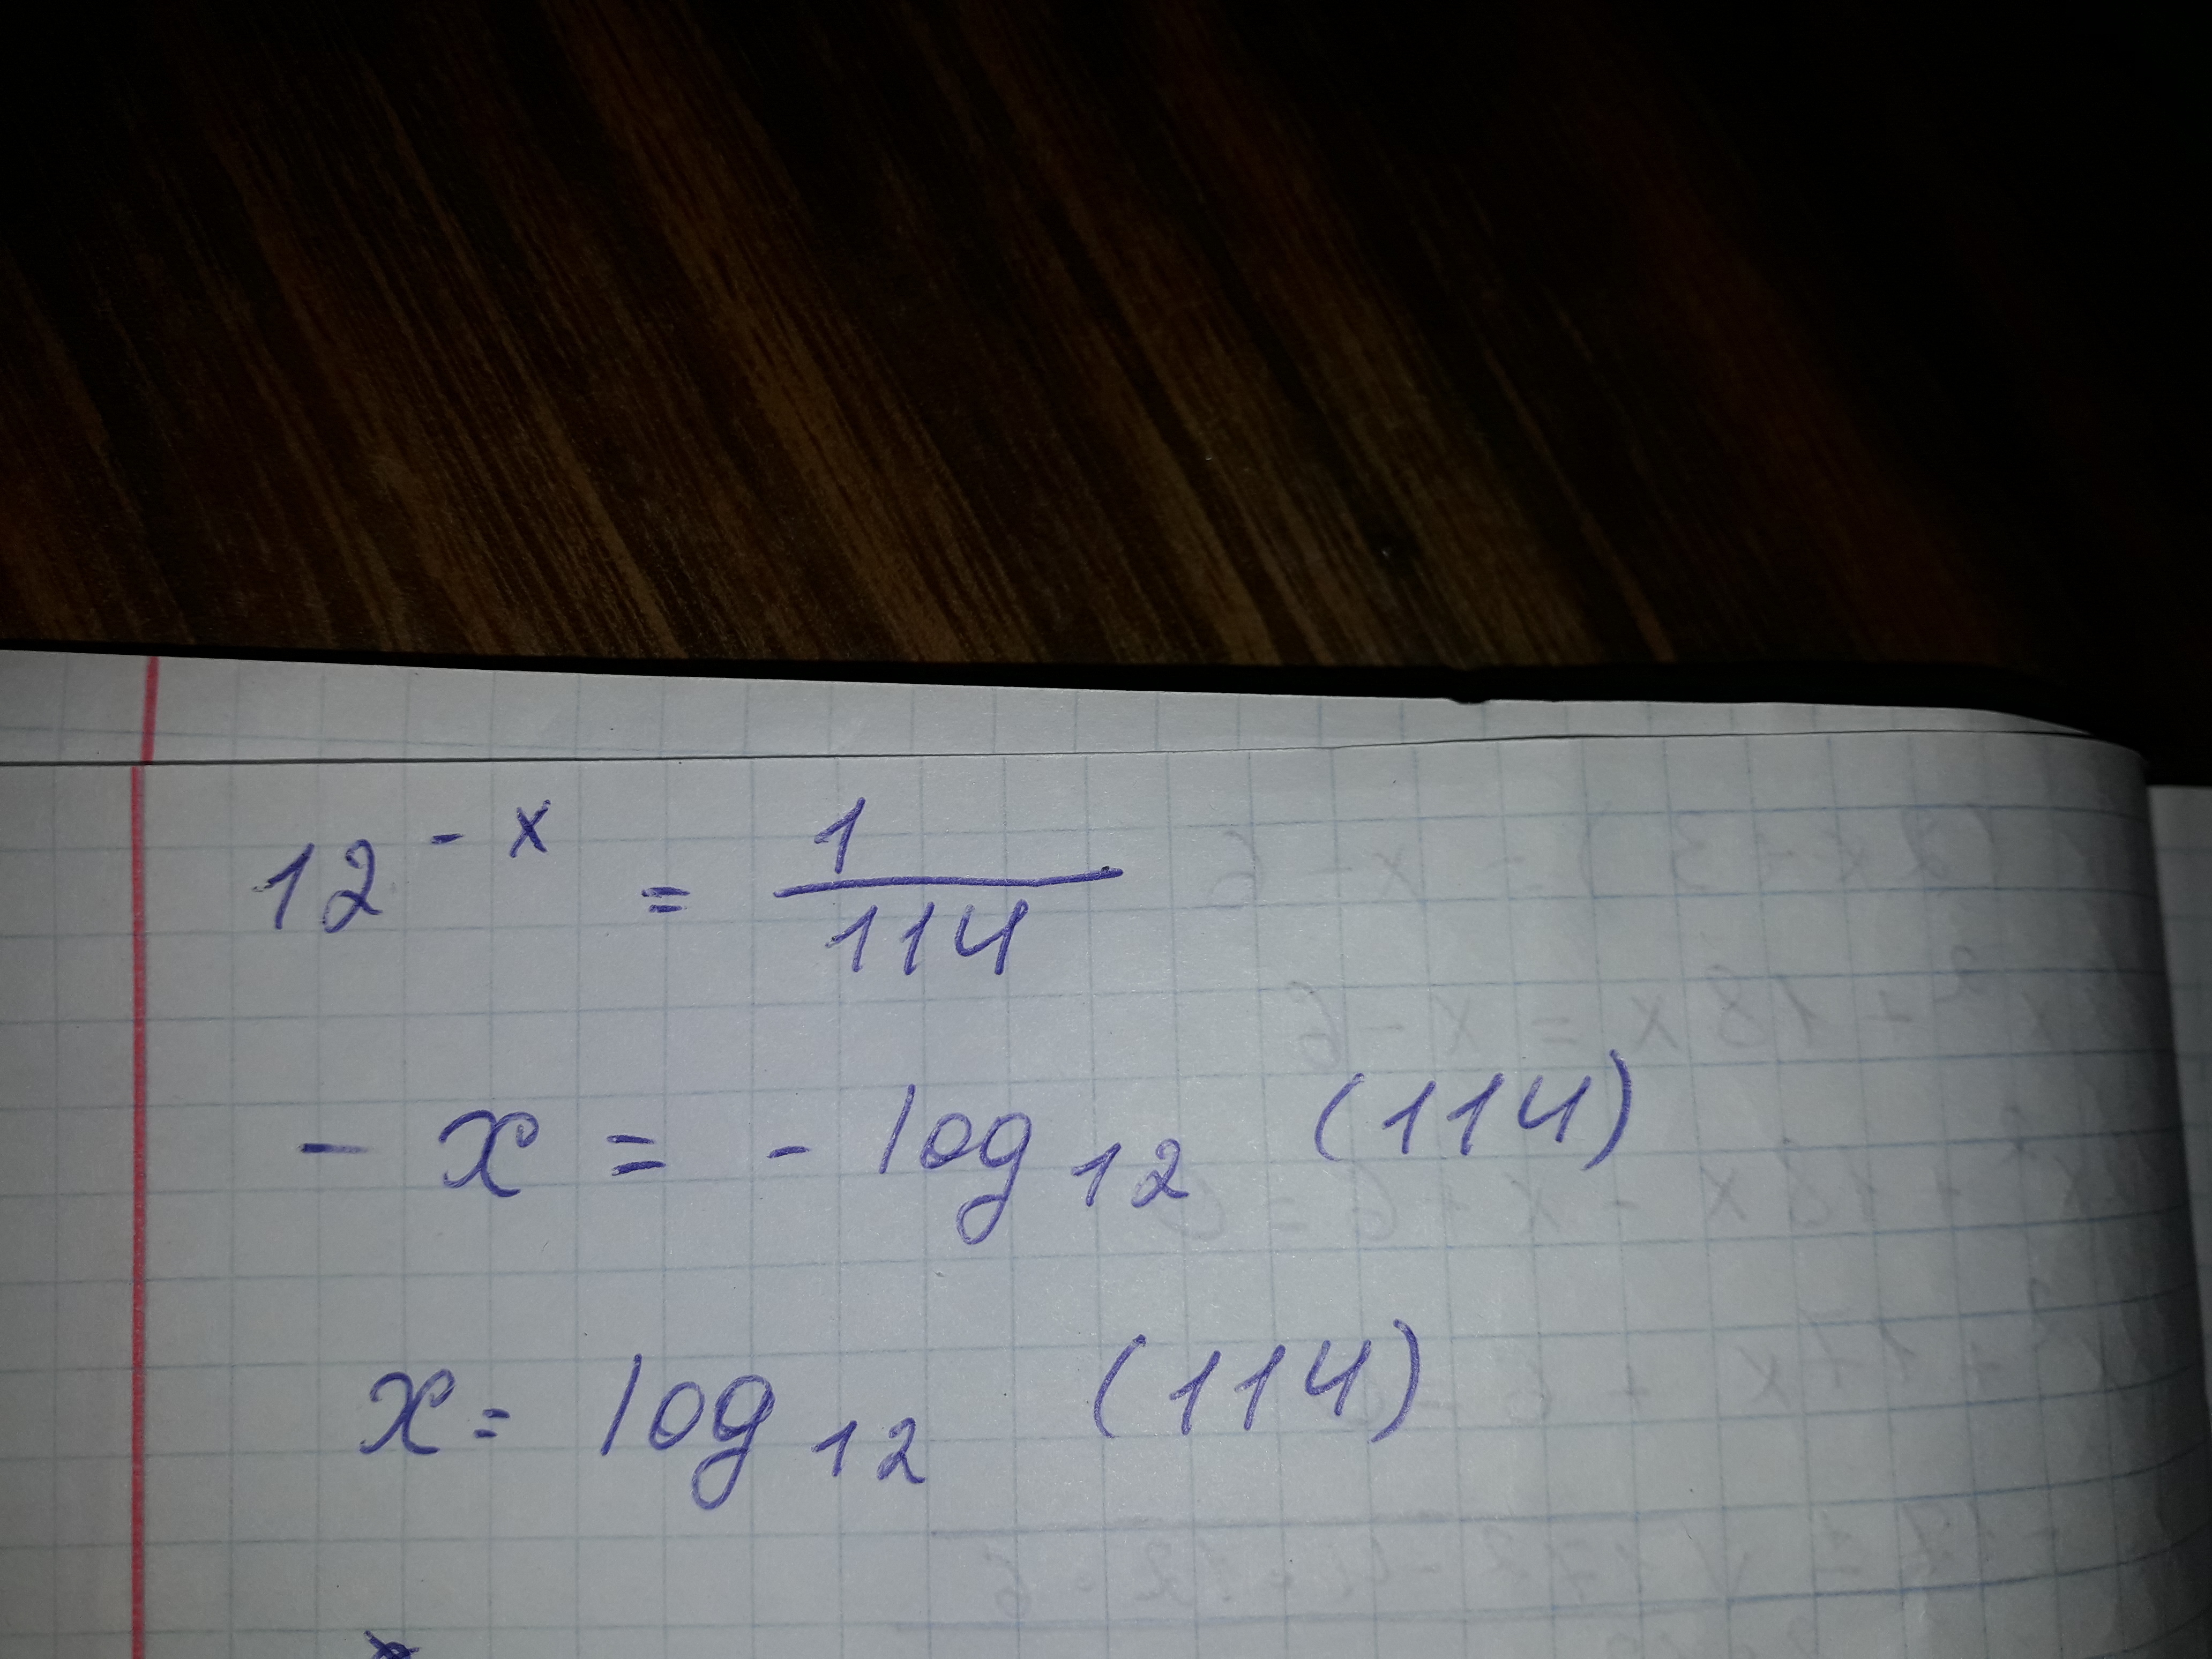 12^{-x} = \frac{1}{114}
- x = - log_{12} (114)
x = log_{12} (114)